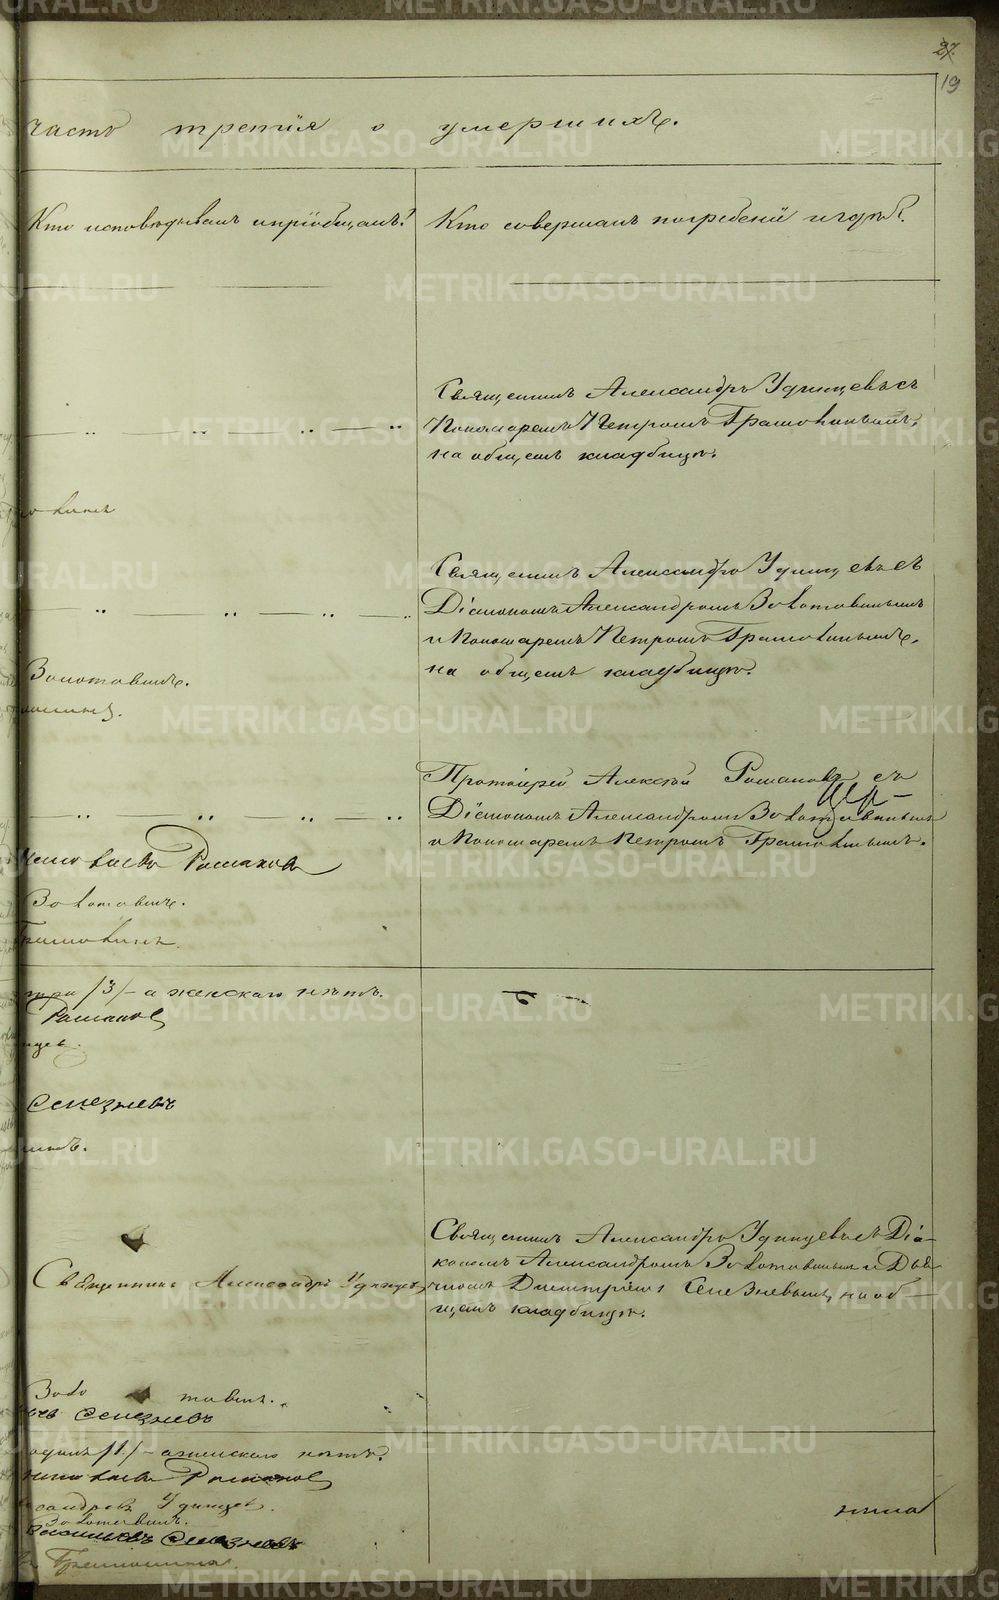 27.
19
часть третія о умершихъ.
Кто исповѣдывалъ и пріобщалъ?
Кто совершалъ погребеніе и гдѣ?
Священникъ Александръ Удинцевъ съ
Пономаремъ Петромъ
на общемъ кладбищѣ.
Священникъ Александръ Удинцевъ съ
Діакономъ Александромъ Золотавинымъ
и Пономаремъ Петромъ
на общемъ кладбищѣ.
Золотавинъ.
Протоіерей Алексѣй Романовъ съ
Діакономъ Александромъ Золотавинымъ
и Пономаремъ Петромъ
Романовъ
Золотавинъ.
три /3/ - а женскаго нѣтъ.
Романовъ
Селезневъ
Священникъ Александръ Удинцевъ съ Діа-
кономъ Александромъ Золотавинымъ и Дья-
Димитріемъ Селезневымъ, на об-
щемъ кладбищѣ.
Священникъ Александръ Удинцевъ
Золотавинъ.
Селезневъ
одинъ /1/ - а женскаго нѣтъ.
Романовъ
Удинцевъ.
Золотавинъ.
Селезневъ
METRIKI.GASO-URAL.RU